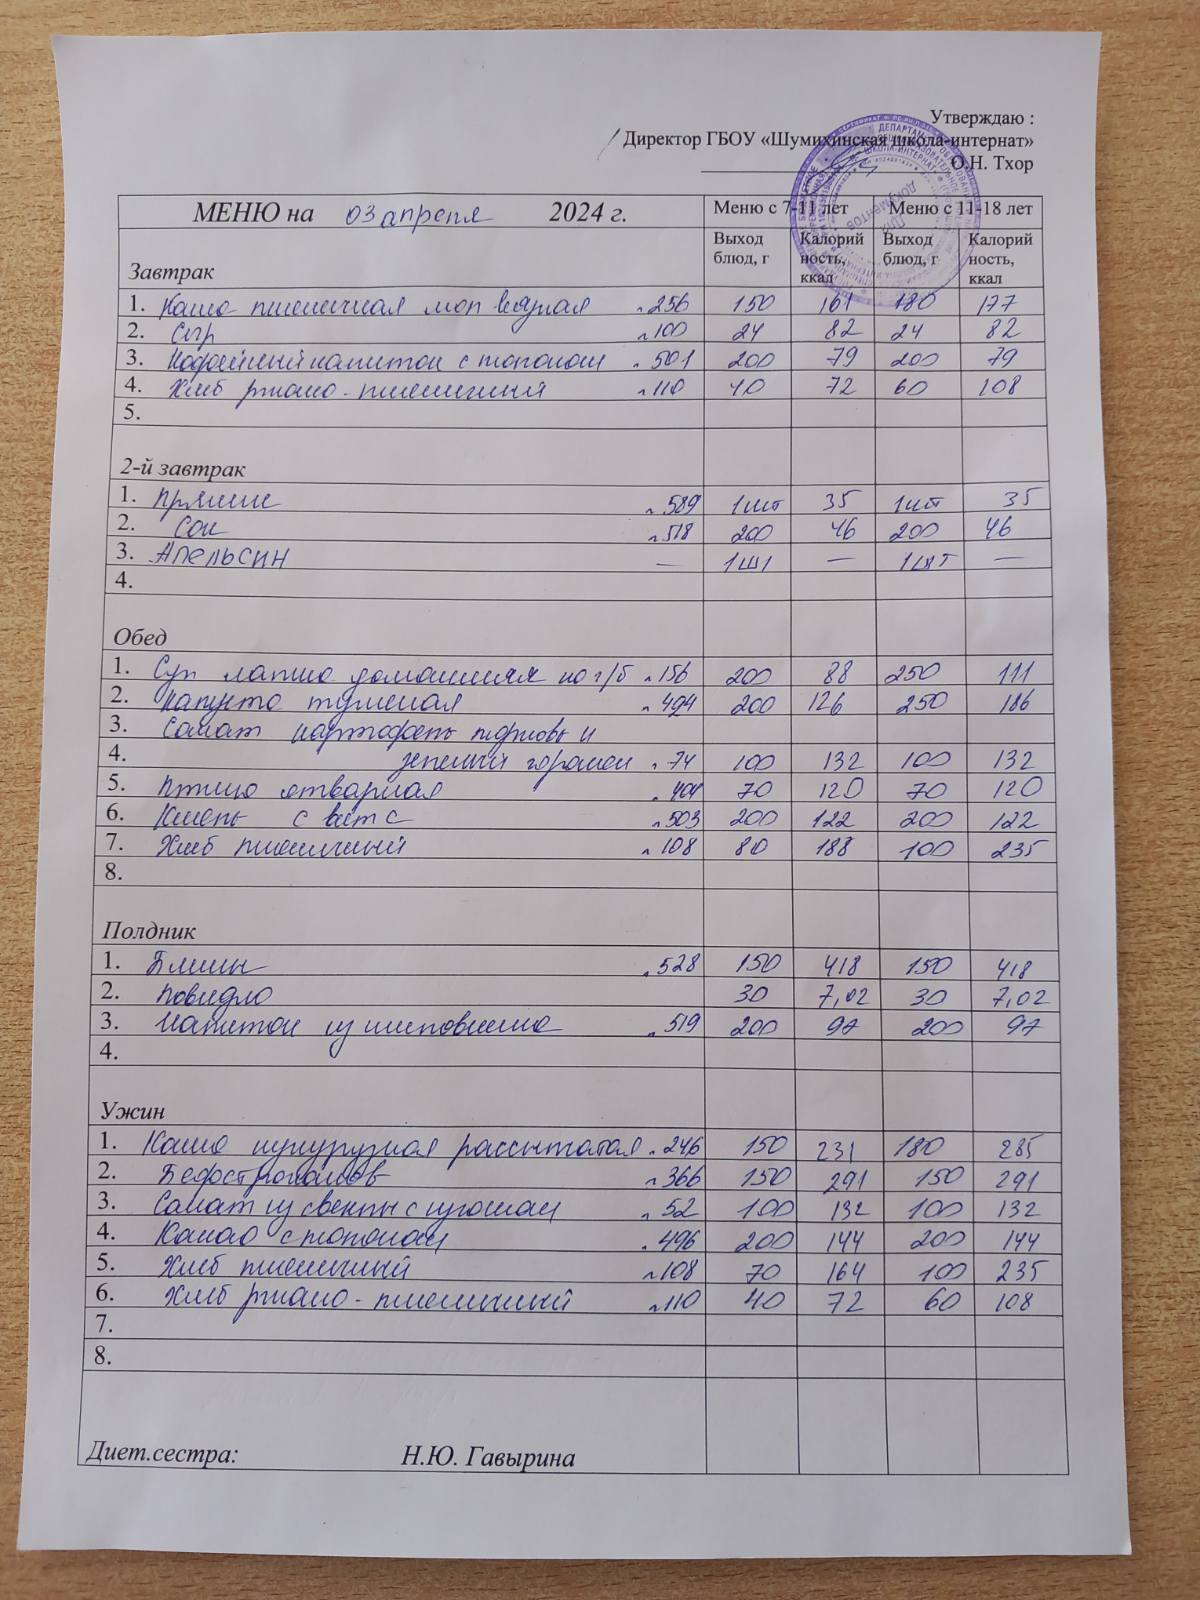 Утверждаю :
Директор ГБОУ «Шумихинская школа-интернат»
О.Н. Тхор
МЕНЮ на 03 апреля 2024 г. Меню с 7-11 лет Меню с 11-18 лет
Завтрак Выход блюд, г Калорий ность, ккал Выход блюд, г Калорий ность, ккал
1. Каша пшеничная мол вязкая 256 150 161 180 177
2. Сыр 100 24 82 24 82
3. Кофейный напиток с молоком 501 200 79 200 79
4. Хлеб ржано-пшеничный 110 40 72 60 108
5.
2-й завтрак
1. Пряник 589 1шт 35 1шт 35
2. Сок 518 200 46 200 46
3. Апельсин — 1шт — 1шт —
4.
Обед
1. Суп лапша домашняя на г/б 156 200 88 250 111
2. Капуста тушеная 494 200 126 250 186
3. Салат картофель морковь и
4. зеленый горошек 74 100 132 100 132
5. Птица отварная 404 70 120 70 120
6. Кисель с вит с 503 200 122 200 122
7. Хлеб пшеничный 108 80 188 100 235
8.
Полдник
1. Блины 528 150 418 150 418
2. Повидло 30 7,02 30 7,02
3. Напиток из шиповника 519 200 97 200 97
4.
Ужин
1. Каша кукурузная рассыпчатая 246 150 231 180 285
2. Бефстроганов 366 150 291 150 291
3. Салат из свеклы с 52 100 132 100 132
4. Какао с молоком 496 200 144 200 144
5. Хлеб пшеничный 108 70 164 100 235
6. Хлеб ржано-пшеничный 110 40 72 60 108
7.
8.
Диет.сестра: Н.Ю. Гавырина
Для документов